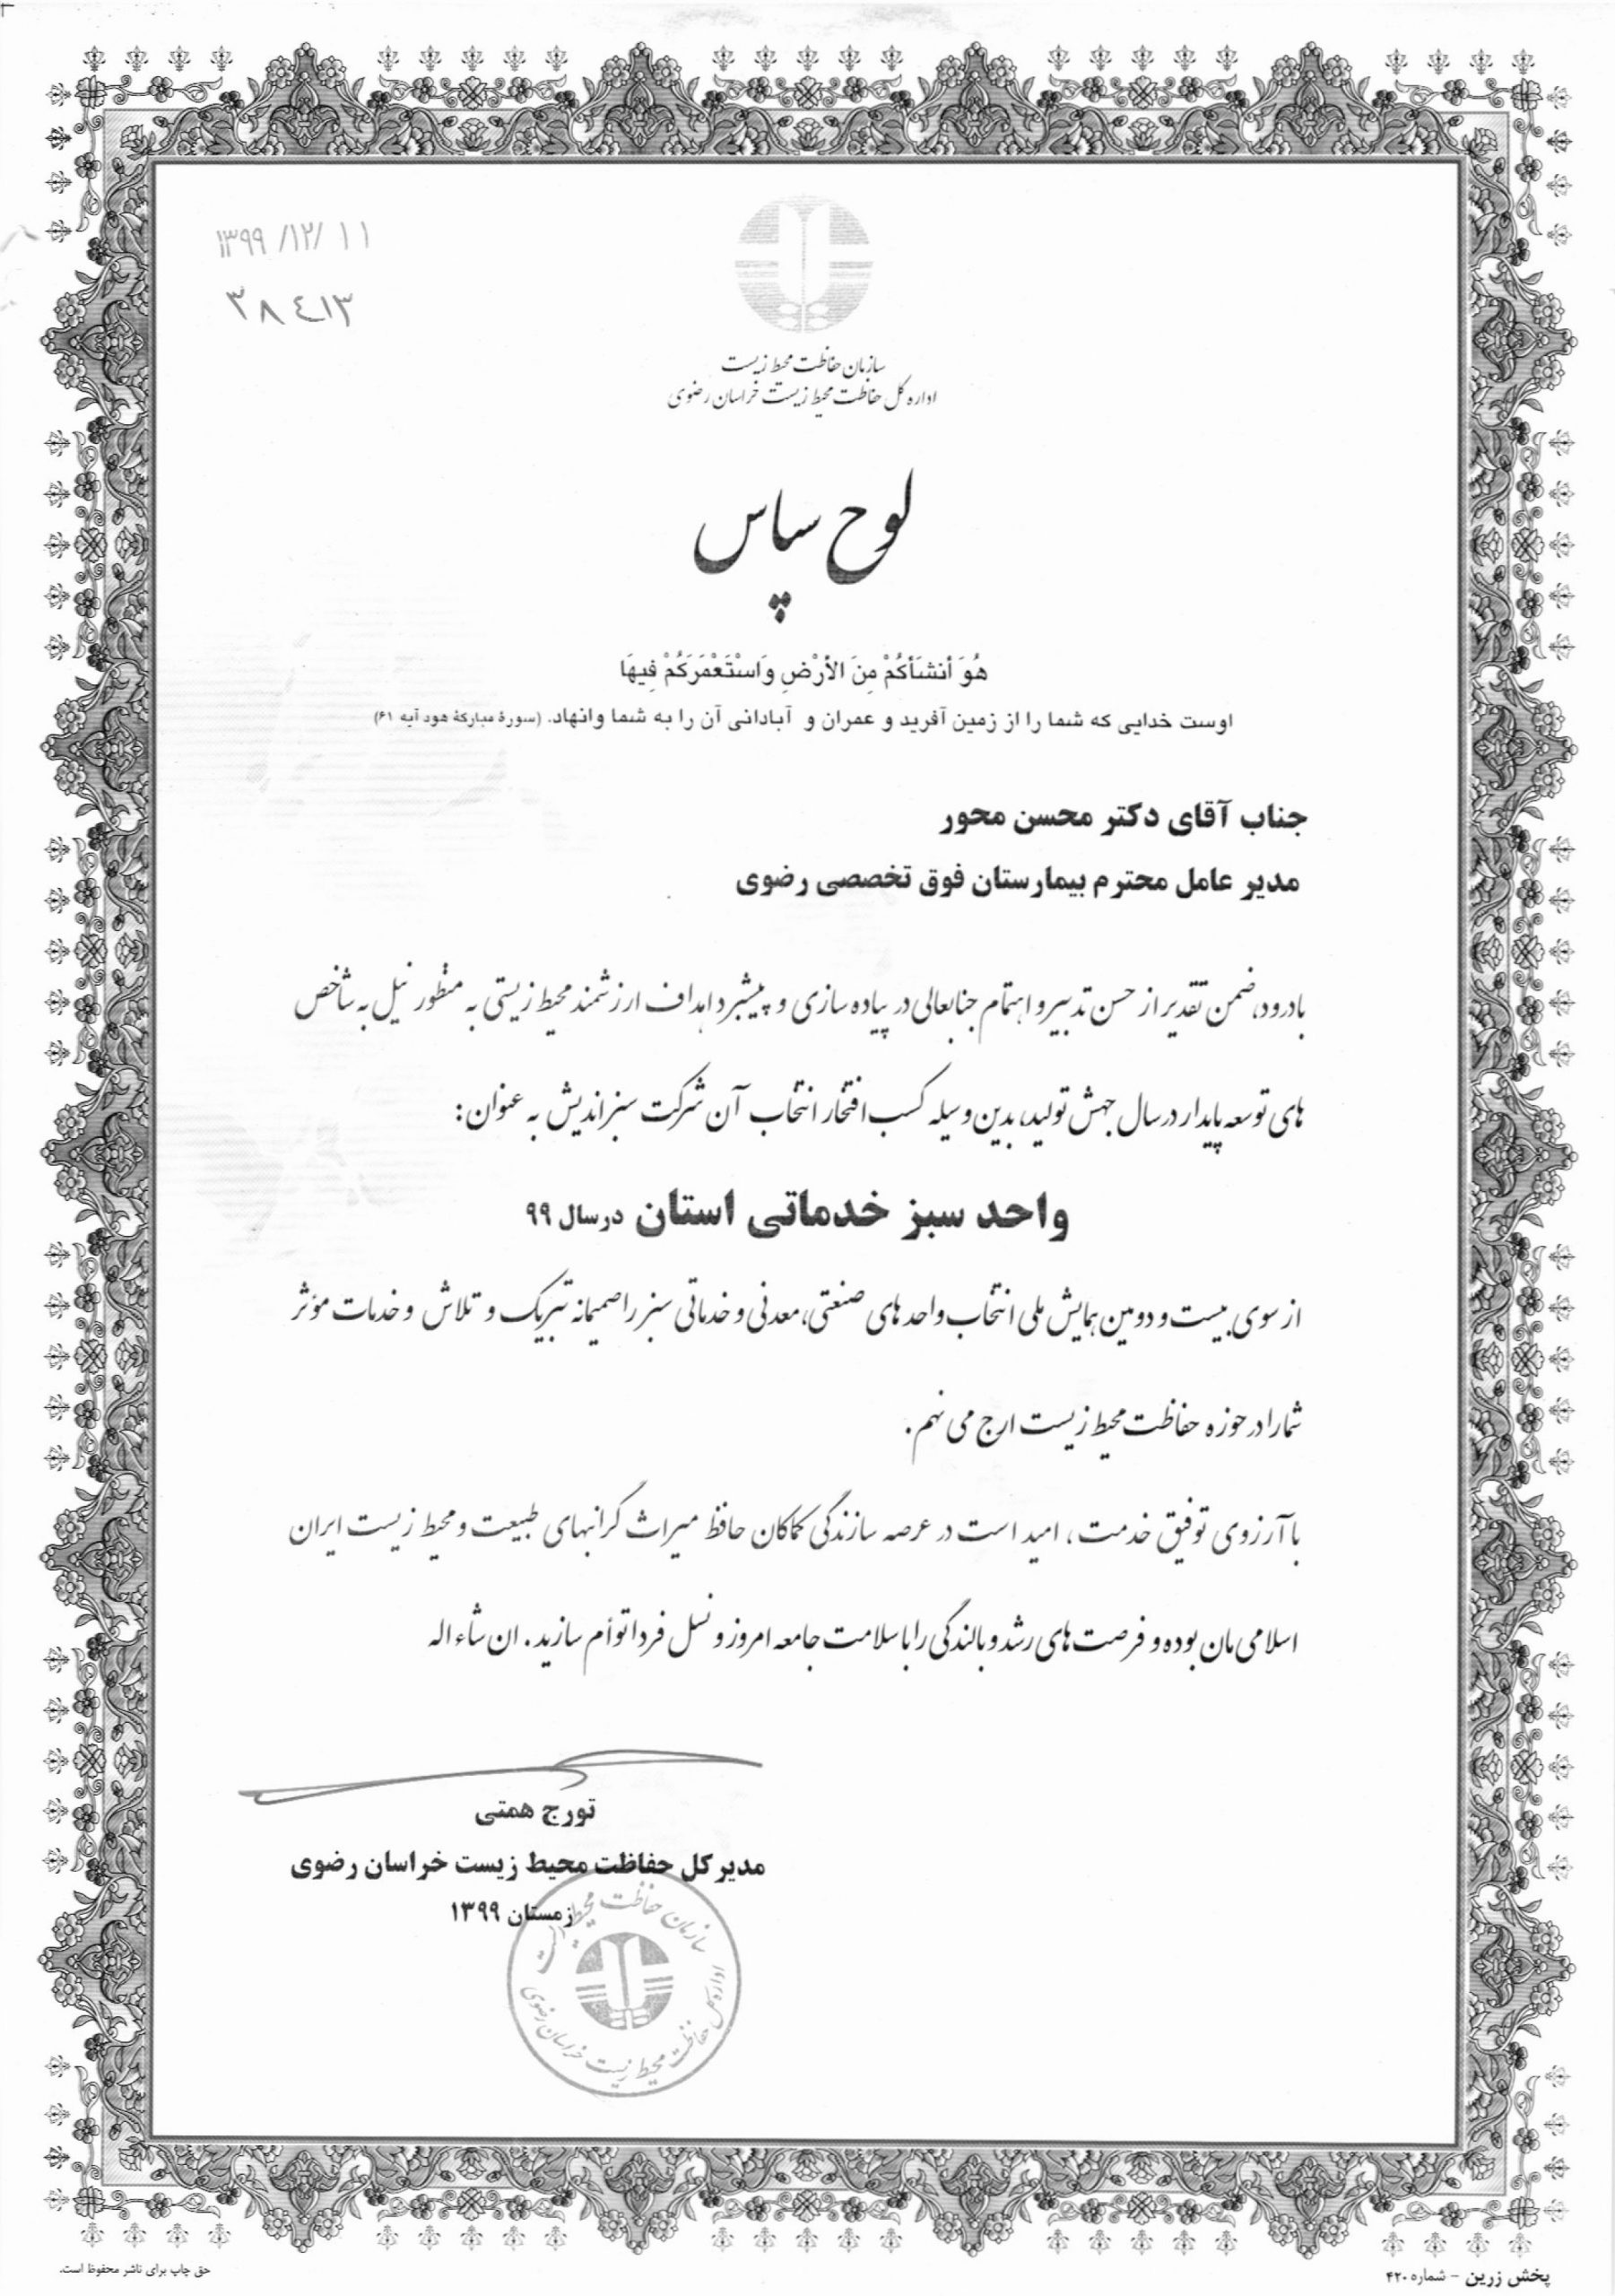 ۱۳۹۹/۱۲/۱۱
۳۸۴۱۳
سازمان حفاظت محیط زیست
اداره کل حفاظت محیط زیست خراسان رضوی
لوح سپاس
هُوَ أَنشَأَكُمْ مِنَ الأَرْضِ وَاسْتَعْمَرَكُمْ فِيهَا
اوست خدایی که شما را از زمین آفرید و عمران و آبادانی آن را به شما وانهاد. (سورۀ مبارکۀ هود آیه ۶۱)
جناب آقای دکتر محسن محور
مدیر عامل محترم بیمارستان فوق تخصصی رضوی
بادرود، ضمن تقدیر از حسن تدبیر و اهتمام جنابعالی در پیاده سازی و پیشبرد اهداف ارزشمند محیط زیستی به منظور نیل به شاخص
های توسعه پایدار در سال جهش تولید، بدین وسیله کسب افتخار انتخاب آن شرکت سبزاندیش به عنوان:
واحد سبز خدماتی استان در سال ۹۹
از سوی بیست و دومین همایش ملی انتخاب واحد های صنعتی، معدنی و خدماتی سبز را صمیمانه تبریک و تلاش و خدمات مؤثر
شما را در حوزه حفاظت محیط زیست ارج می نهم.
با آرزوی توفیق خدمت، امید است در عرصه سازندگی کماکان حافظ میراث گرانبهای طبیعت و محیط زیست ایران
اسلامی مان بوده و فرصت های رشد و بالندگی را با سلامت جامعه امروز و نسل فردا توأم سازید. ان شاء اله
تورج همتی
مدیر کل حفاظت محیط زیست خراسان رضوی
زمستان ۱۳۹۹
سازمان حفاظت محیط زیست
اداره کل حفاظت محیط زیست خراسان رضوی
پخش زرین - شماره ۴۲۰
حق چاپ برای ناشر محفوظ است.